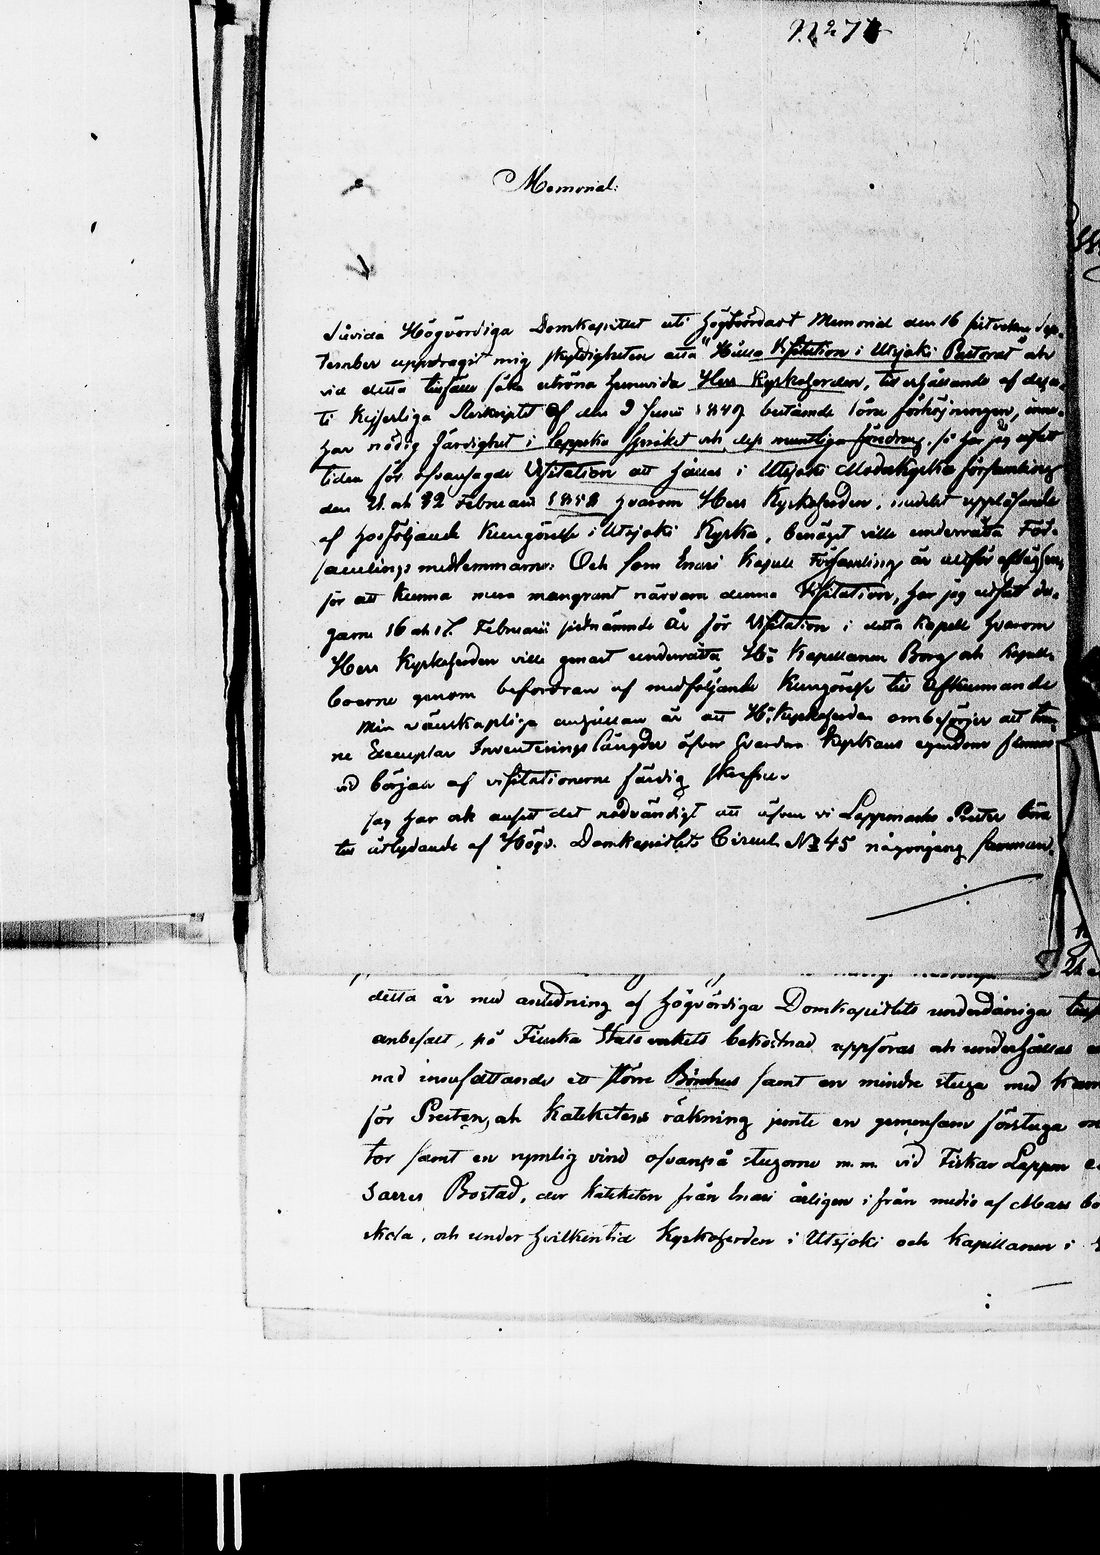 N° 27
Memorial.
Såvida Högvördiga Domkapitlet uti Högtvördart Memorial den 16 sistvekne Sep-
tember uppdragit mig skyldigheten att "Hålla Visitation i Utsjoki Pastorat" och
vid detta tillfälle söka utröna huruvida Herr Kyrkoherden, till erhållande af
ti Kejserliga Reskriptet af den 9 Junii 1849 bestämde löne förhöjningen, inne-
har nödig färdighet i Lappska språket och dess muntliga föredrag, så har jag utsatt
tiden för ofvansagde Visitation att hållas i Utsjoki Moderkyrko församling
den 21 och 22 Februarii 1858 hvarom Herr Kyrkoherden, medelst uppläsande
af hosföljande Kungörelse i Utsjoki Kyrka, benäget ville underrätta För-
samlings medlemmarne. Och som Enari Kapell Församling är alltför aflägsen,
för att kunna mera mangrant närvara denna Visitation, har jag utsatt da-
garne 16 och 17 Februarii sistnämnde År för Visitation i detta Kapell hvarom
Herr Kyrkoherden ville genast underrätta Hr Kapellanen Borg och Kapell-
boerne genom befordran af medföljande Kungörelse till
Min vänskapliga anhållan är att Hr Kyrkoherden ombesörjer att
ne Exemplar Inventerings Längder öfver hvardera Kyrkans egendom finnas
vid början af visitationerne färdig skrefne.
Jag har ock ansett det nödvändigt att äfven vi Lappmarks Prester böra
till åtlydande af Högv. Domkapitlets Circul. N° 45 någongång samman-
detta är med anledning af Högvördiga Domkapitlets underdåniga
anbefalt, på Finska Statsverkets bekostnad uppföras och underhållas
nad innefattande ett större Bönehus samt en mindre stuga med
för Presten, och Kateketens räkning jemte en gemensam förstuga
tor samt en rymlig vind ofvanpå stugorne m. m. vid Fiskar Lappen
Sarres Bostad, der Kateketen från Enari årligen ifrån medio af Mars
skola, och under hvilken tid Kyrkoherden i Utsjoki och Kapellanen i